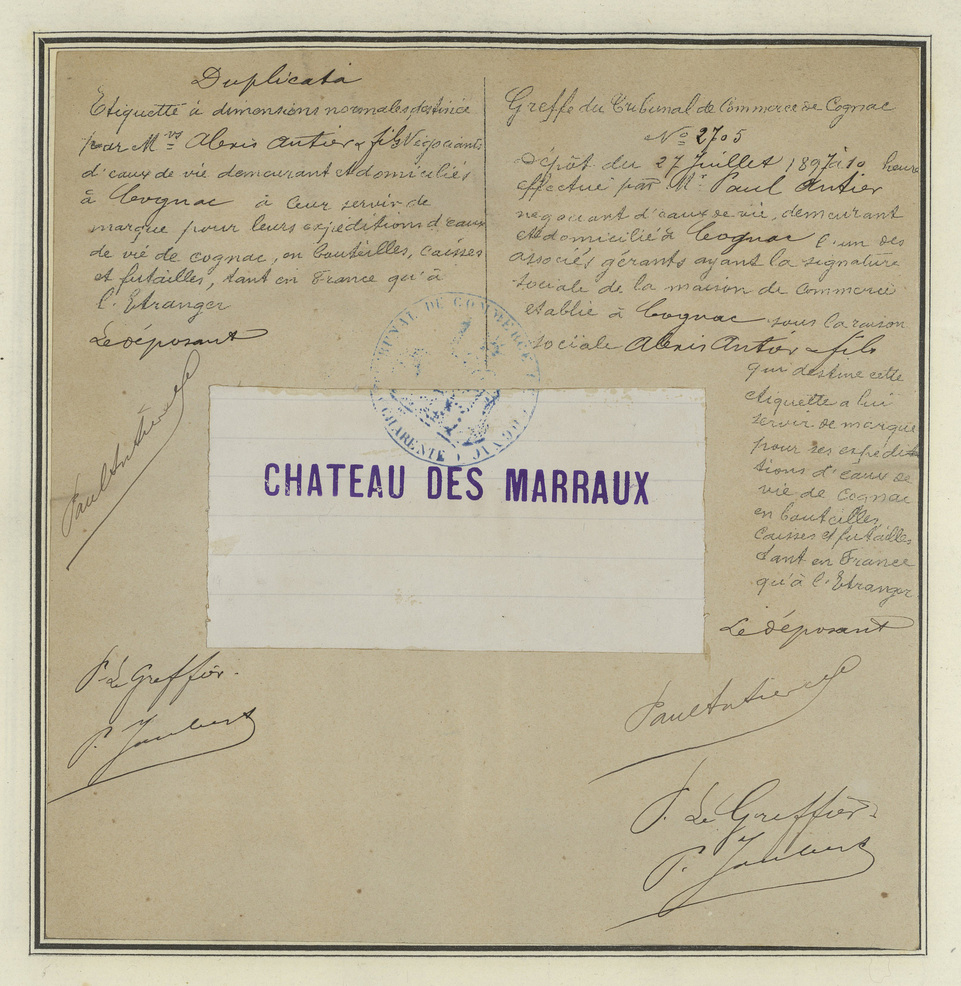 Duplicata
Etiquette à dimensions normales destinée
par Mrs Alexis Antier & fils Négociants
d'eaux de vie demeurant et domiciliés
à Cognac à leur servir de
marque pour leurs expéditions d'eaux
de vie de cognac, en bouteilles, caisses
et futailles, tant en France qu'à
l'Etranger
Le déposant
Paul Antier
P. Le Greffier.
P. Joubert
Greffe du Tribunal de Commerce de Cognac
No 2705
Dépôt du 27 Juillet 1897 à 10 heure
effectué par Mr Paul Antier
negociant d'eaux de vie, demeurant
et domicilié à Cognac l'un des
associés gérants ayant la signature
sociale de la maison de commerce
etablie à Cognac sous la raison
sociale Alexis Antier & fils
qui destine cette
etiquette a lui
servir de marque
pour ses expédi-
tions d'eaux de
vie de cognac
en bouteilles
caisses et futailles
tant en France
qu'à l'Etranger
Le déposant
Paul Antier
P. Le Greffier
P. Joubert
TRIBUNAL DE COMMERCE
COGNAC (CHARENTE)
CHATEAU DES MARRAUX